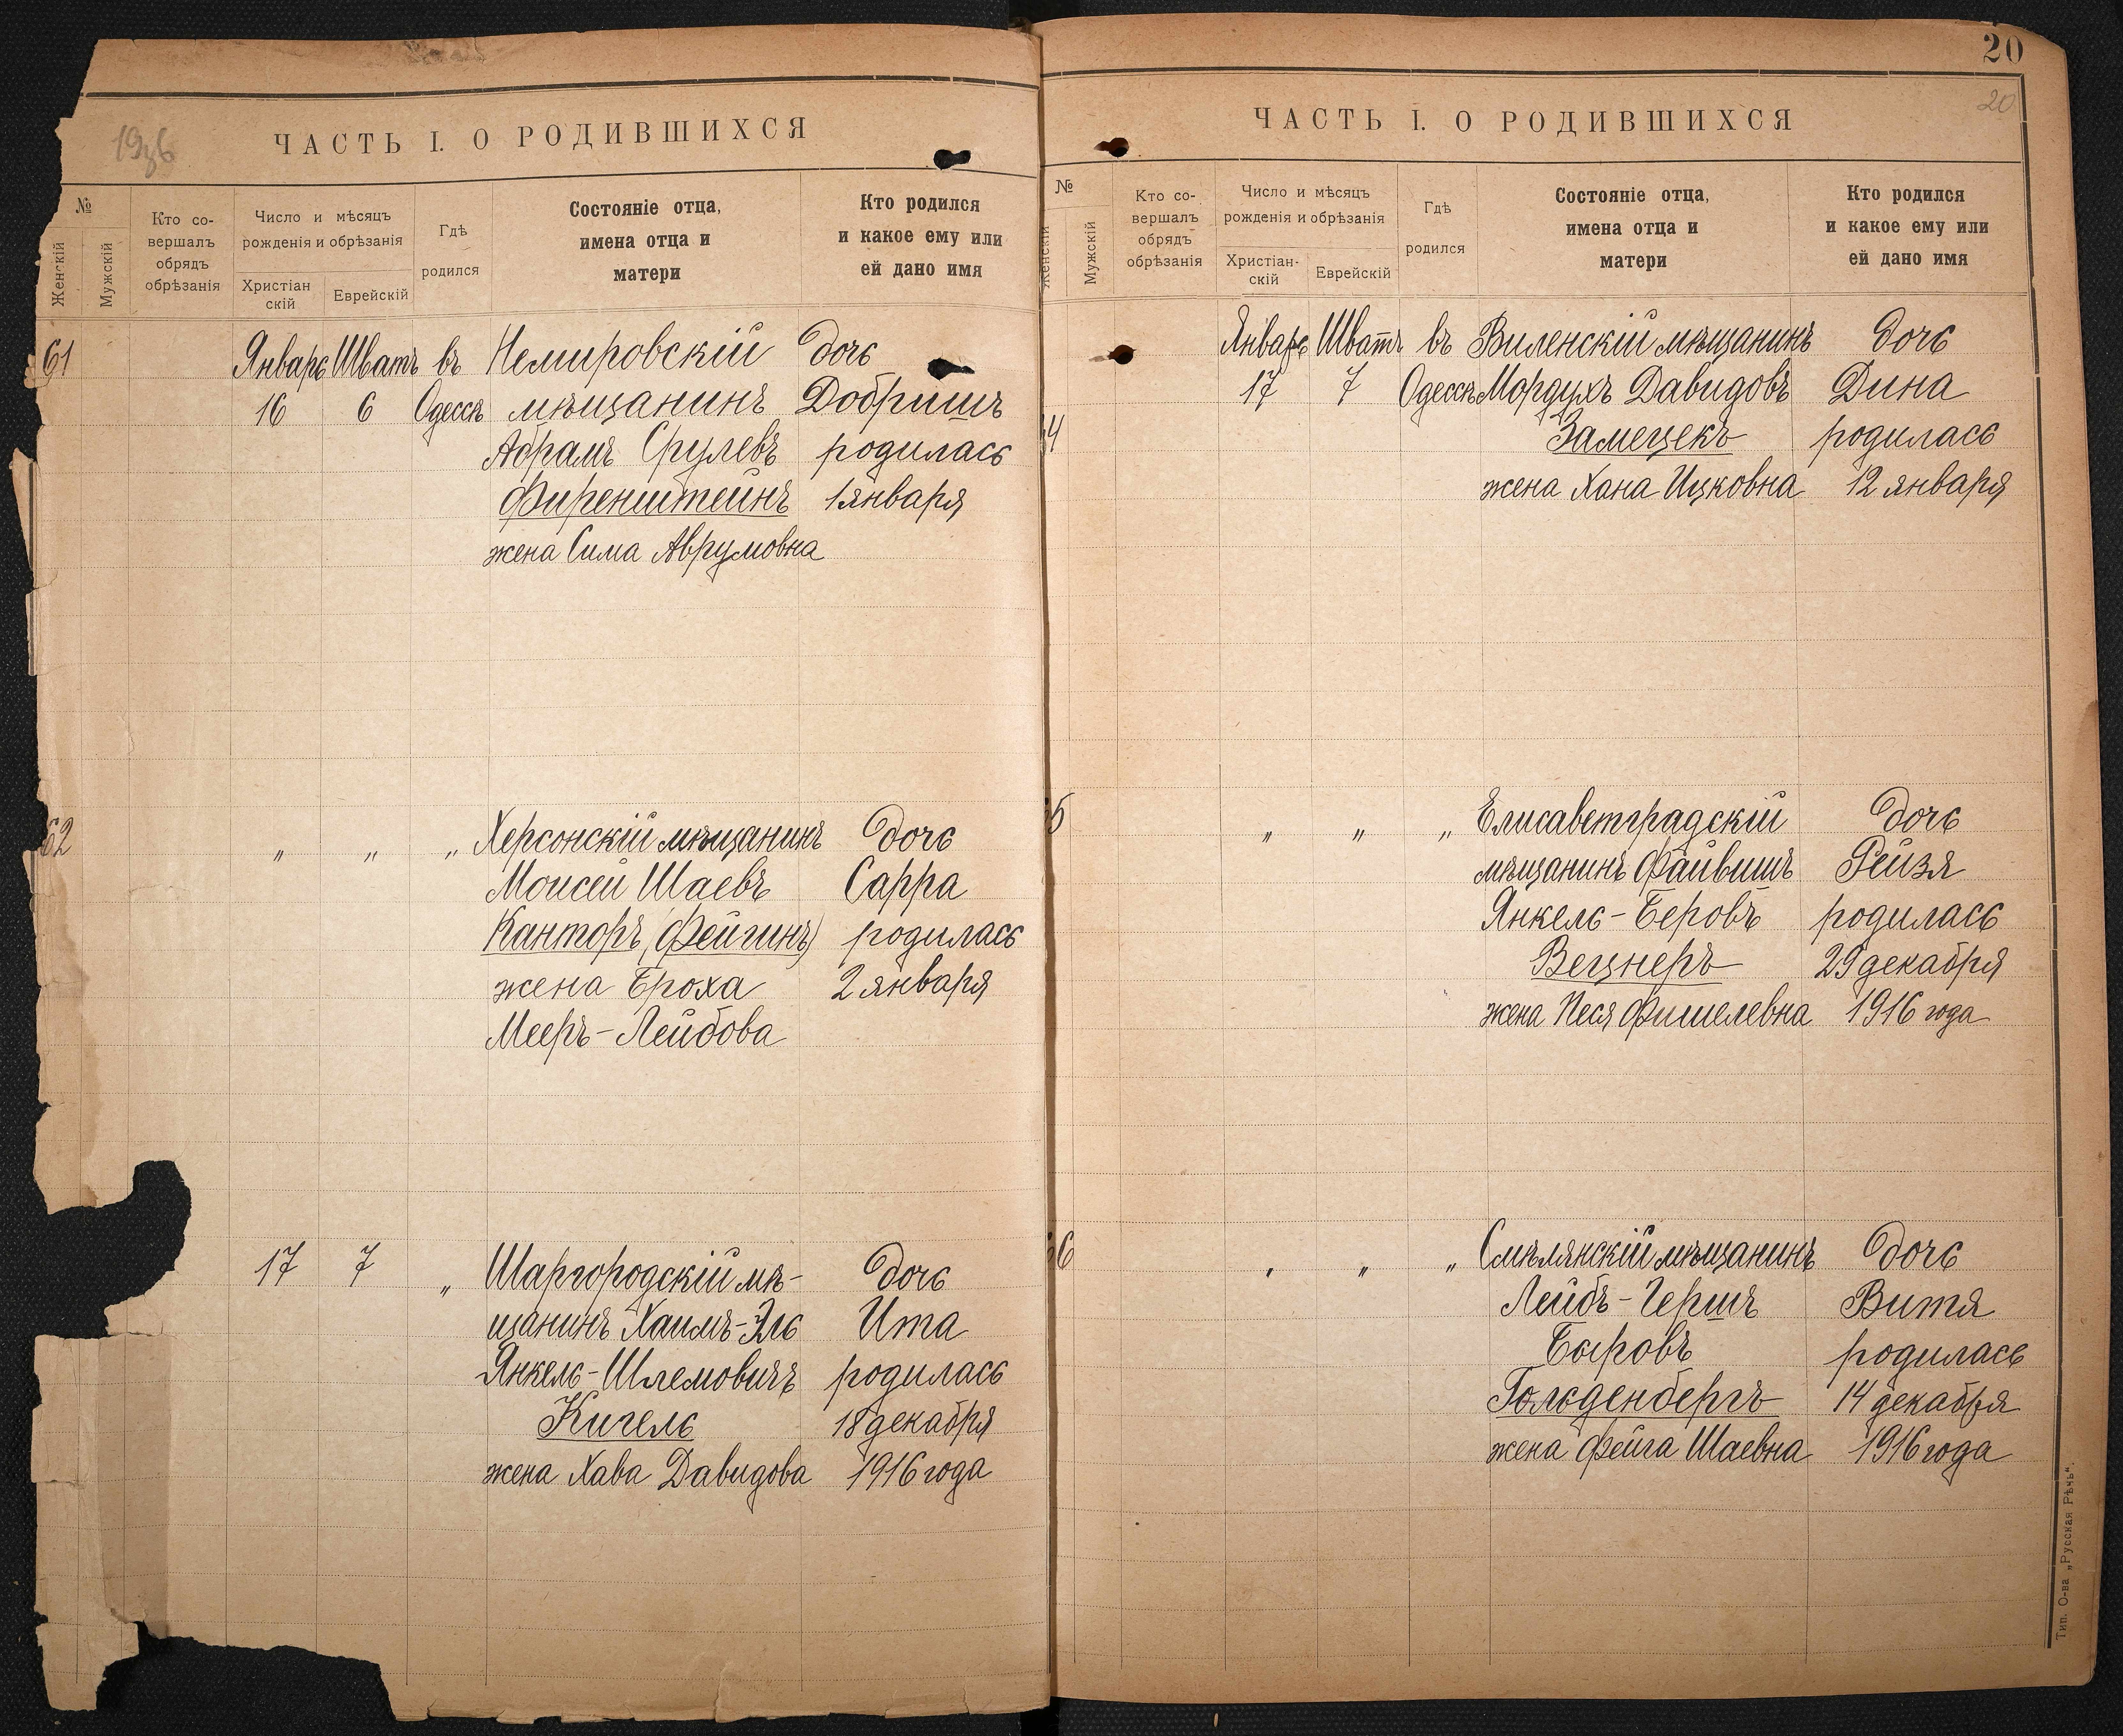 ЧАСТЬ I. О РОДИВШИХСЯ
№
Женскій
Мужскій
Кто со-
вершалъ
обрядъ
обрѣзанія
Число и мѣсяцъ
рожденія и обрѣзанія
Христіан
скій
Еврейскій
Гдѣ
родился
Состояніе отца,
имена отца и
матери
Кто родился
и какое ему или
ей дано имя
61 Январь Шватъ въ Немировскій дочь
16 6 Одессѣ мѣщанинъ Добришъ
Абрамъ Срулевъ родилась
Фиренштейнъ 1 января
жена Сима Аврумовна
62 „ „ „ Херсонскій мѣщанинъ дочь
Моисей Шаевъ Сарра
Канторъ (Фейгинъ) родилась
жена Броха 2 января
Мееръ-Лейбова
17 7 „ Шаргородскій мѣ- дочь
щанинъ Хаимъ-Эль Ита
Янкель-Шлемовичъ родилась
Кигель 18 декабря
жена Хава Давидова 1916 года
20
20
ЧАСТЬ I. О РОДИВШИХСЯ
№
Женскій
Мужскій
Кто со-
вершалъ
обрядъ
обрѣзанія
Число и мѣсяцъ
рожденія и обрѣзанія
Христіан-
скій
Еврейскій
Гдѣ
родился
Состояніе отца,
имена отца и
матери
Кто родился
и какое ему или
ей дано имя
Январь Шватъ въ Виленскій мѣщанинъ дочь
17 7 Одессѣ Мордухъ Давидовъ Дина
4 Замецекъ родилась
жена Хана Ицковна 12 января
5 „ „ „ Елисаветградскій дочь
мѣщанинъ Файвишъ Рейзя
Янкель-Беровъ родилась
Вецнеръ 29 декабря
жена Песя Фишелевна 1916 года
6 „ „ „ Смѣлянскій мѣщанинъ дочь
Лейбъ-Гершъ Витя
Быровъ родилась
Гольденбергъ 14 декабря
жена Фейга Шаевна 1916 года
Тип. О-ва „Русская Рѣчь“.